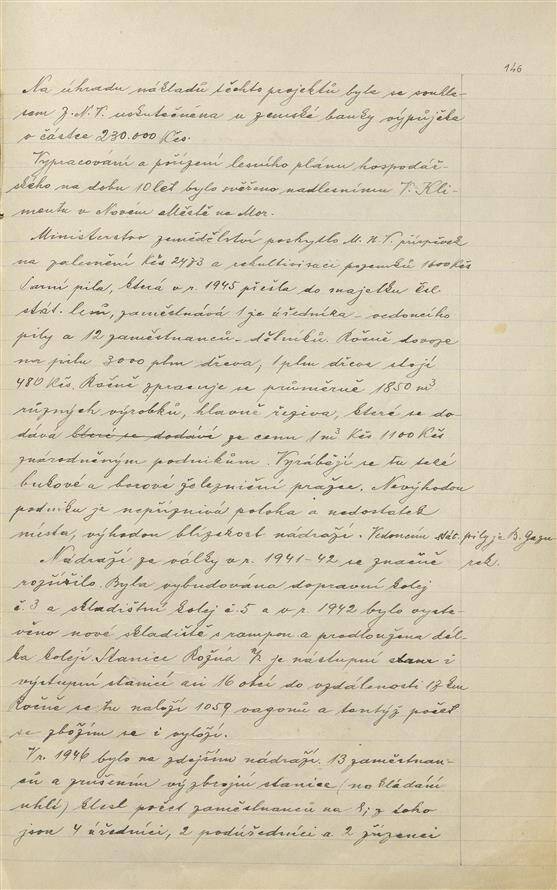 146
Na úhradu nákladů těchto projektů byla se souhla-
sem Z. N. V. uskutečněna u zemské banky výpůjčka
v částce 230.000 Kčs.
Vypracování a pořízení lesního plánu hospodář-
ského na dobu 10 let bylo svěřeno nadlesnímu V. Kli-
mentu v Novém Městě na Mor.
Ministerstvo zemědělství poskytlo M. N. V. příspěvek
na zalesnění Kčs 2473 a rekultivisaci pozemků 1600 Kčs
Parní pila, která v r. 1945 přešla do majetku čsl.
stát. lesů, zaměstnává 1 úředníka - vedoucího
pily a 12 zaměstnanců - dělníků. Ročně doveze
na pilu 3000 plm dřeva, 1 plm dřeva stojí
480 Kčs. Ročně zpracuje se průměrně 1850 m³
různých výrobků, hlavně řeziva, které se do-
dává které se dodává za cenu 1 m³ Kčs 1100 Kčs
znárodněným podnikům. Vyrábějí se tu také
bukové a borové železniční pražce. Nevýhodou
podniku je nepříznivá poloha a nedostatek
místa, výhodou blízkost nádraží. Vedoucím stát. pily je B. Gazu-
rek.
Nádraží za války v r. 1941-42 se značně
rozšířilo. Byla vybudována dopravní kolej
č. 3 a skladištní kolej č. 5 a v r. 1942 bylo vysta-
věno nové skladiště s rampou a prodloužena dél-
ka kolejí. Stanice Rožná n/P. je nástupní stanic i
výstupní stanicí asi 16 obcí do vzdálenosti 12 km
Ročně se tu naloží 1059 vagonů a tentýž počet
se zbožím se i vyloží.
V r. 1946 bylo na zdejším nádraží 13 zaměstnan-
ců a zrušením výzbrojní stanice (nakládání
uhlí) klesl počet zaměstnanců na 8; z toho
jsou 4 úředníci, 2 podúředníci a 2 zřízenci